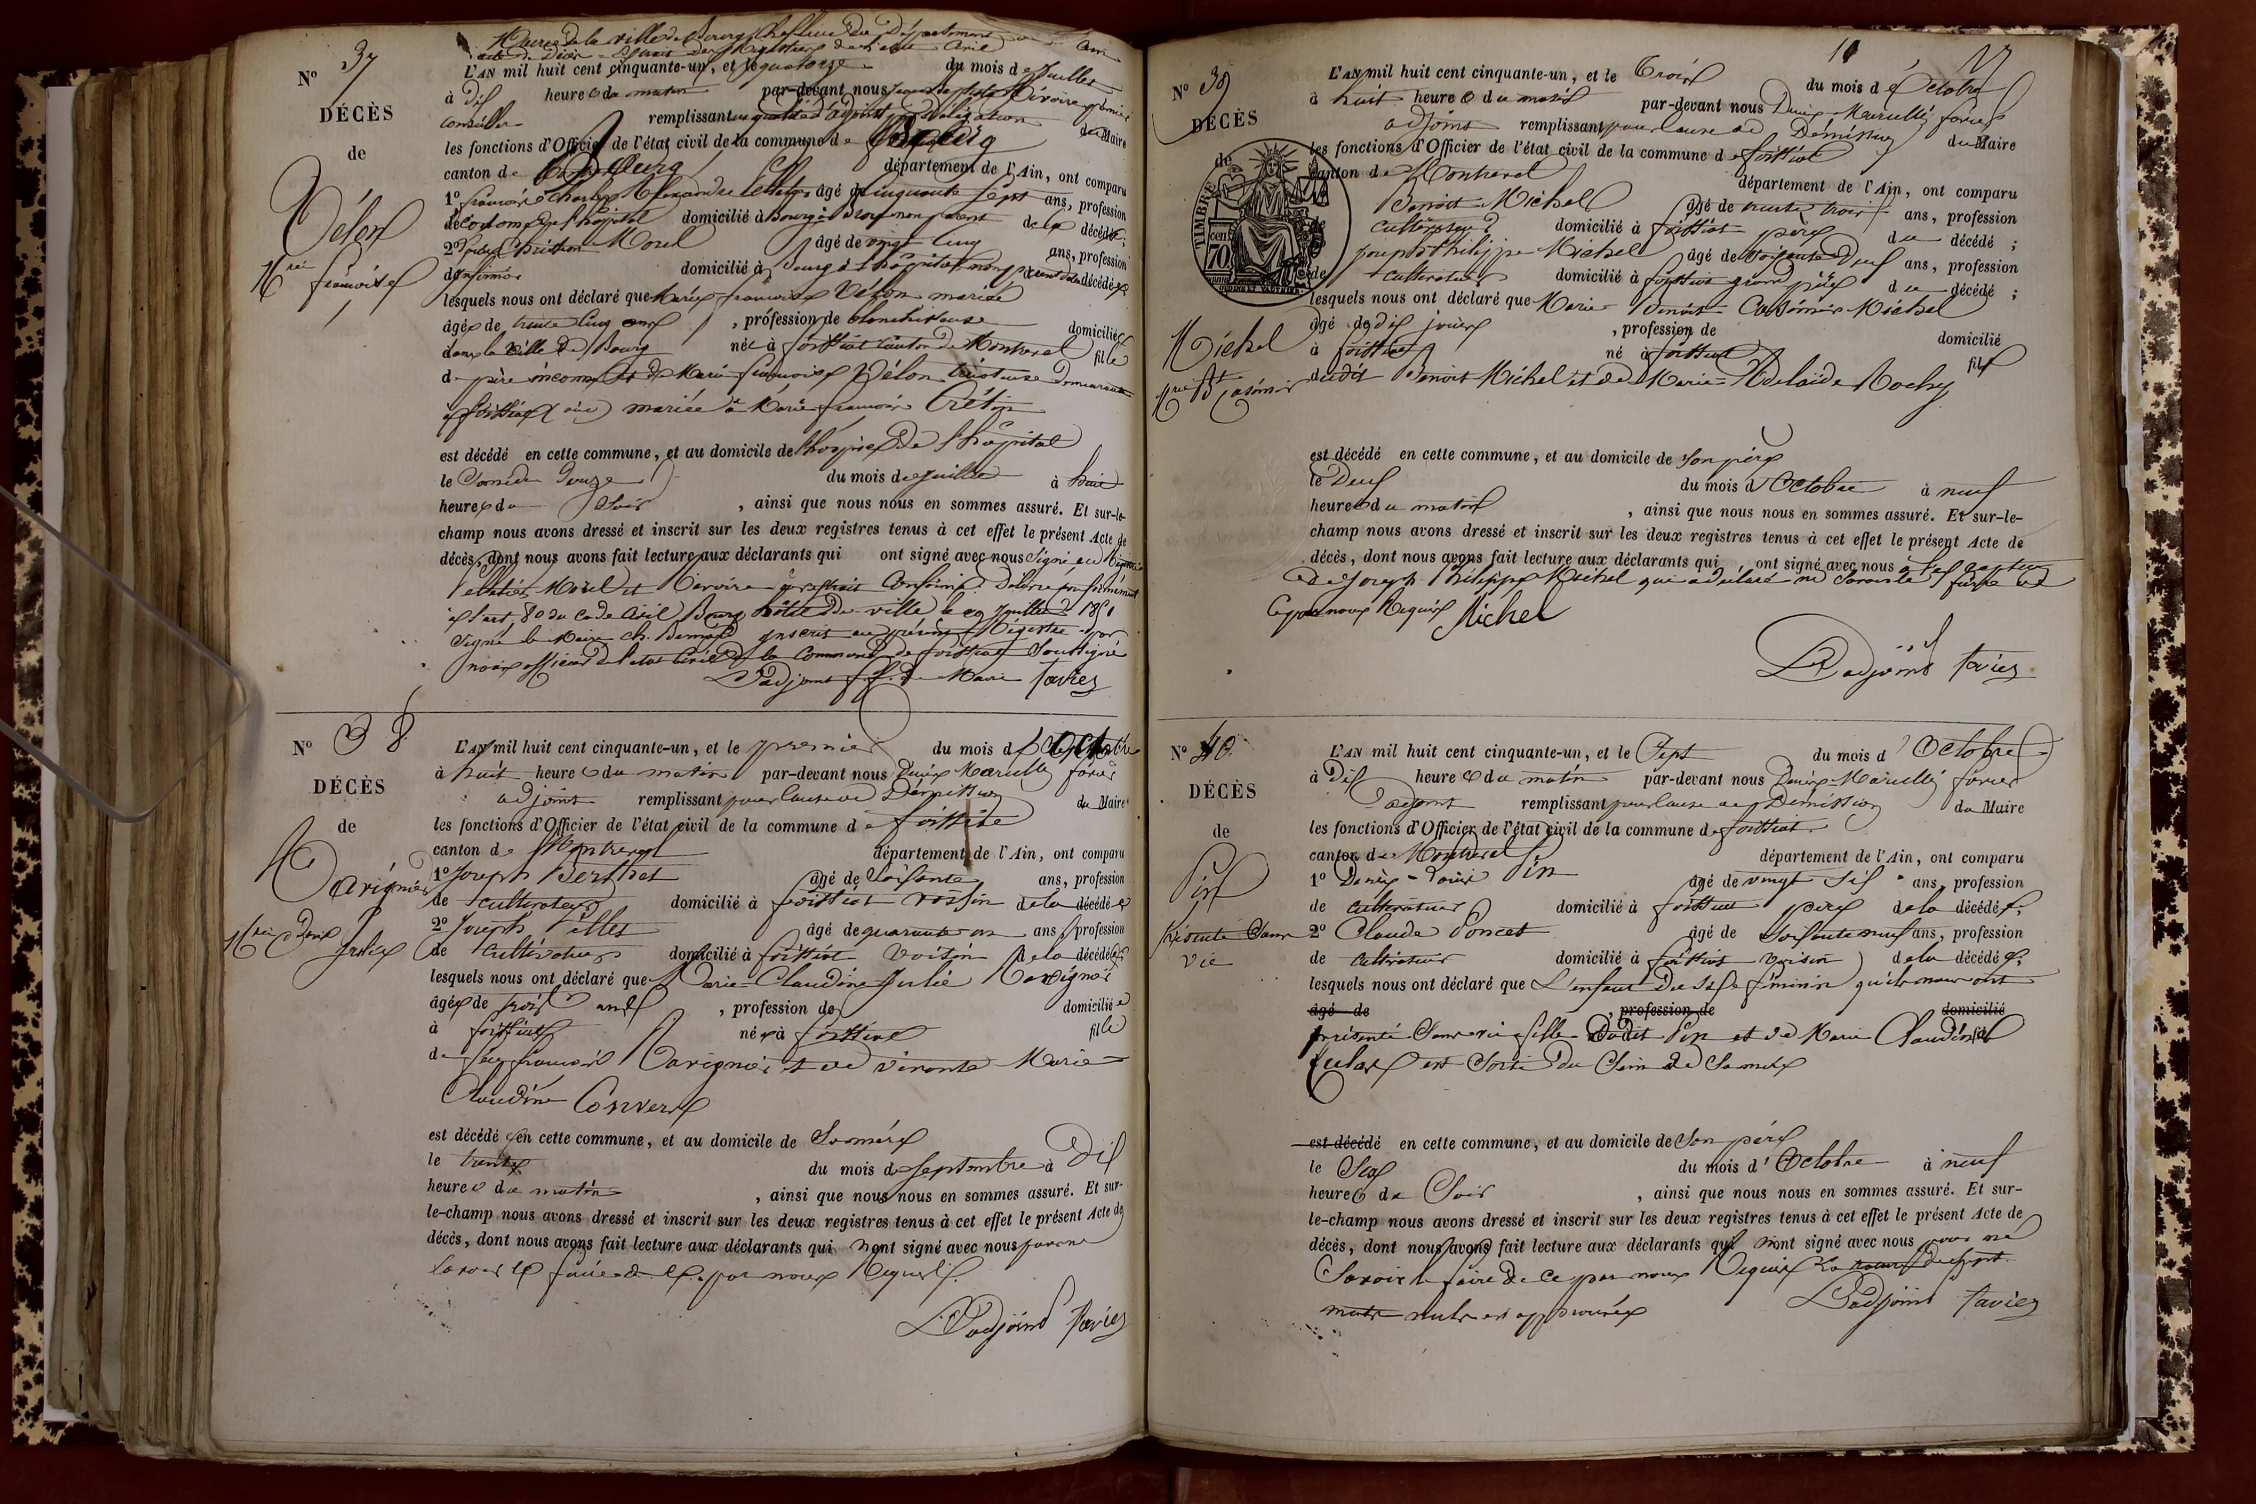 Mairie de la ville de Bourg chef lieu du Département de l'Ain
acte de Décès Extrait des Registres de l'état Civil
N° 37
DÉCÈS
de
Vélon
Mrie françoise
L'AN mil huit cent cinquante-un, et le quatorze du mois de Juillet
à Dix heures du matin par-devant nous Péroire premier
conseiller remplissant en qualité d'adjoint par délégation du Maire
les fonctions d'Officier de l'état civil de la commune de Bourg
canton de Bourg département de l'Ain, ont comparu
1° françois Charles Alexandre âgé de cinquante sept ans, profession
d'économe de l'hôpital domicilié à Bourg non parent de la décédée;
2° Morel âgé de vingt cinq ans, profession
d'infirmier domicilié à Bourg à l'hôpital non parent de la décédée
lesquels nous ont déclaré que Marie françoise Vélon mariée
âgée de trente cinq ans, profession de blanchisseuse domiciliée
dans la Ville de Bourg née à foissiat canton de Montrevel fille
de père inconnu et de Marie françoise Vélon tricoteuse demeurant
à foissiat (ain) mariée à Marie françois Crétin
est décédé en cette commune, et au domicile de l'hospice de l'hôpital
le Samedi Douze du mois de Juillet à huit
heures du Soir, ainsi que nous nous en sommes assuré. Et sur-le-
champ nous avons dressé et inscrit sur les deux registres tenus à cet effet le présent Acte de
décès, dont nous avons fait lecture aux déclarants qui ont signé avec nous Signé au Registre
Morel et Péroire pour extrait Conforme Délivré conformément
à l'art. 80 du Code Civil Bourg hôtel de ville le 29 Juillet 1851
Signé le Maire Ch. Bernard inscrit au présent Régistre par
nous officier de l'état Civil de la Commune de foissiat Soussigné
L'adjoint f. f. de Maire favier
N° 38
DÉCÈS
de
Marignier
Mrie Cdine Julie
L'AN mil huit cent cinquante-un, et le premier du mois d'Octobre
à huit heures du matin par-devant nous Denis Marcelly favier
adjoint remplissant pour cause de Démission du Maire
les fonctions d'Officier de l'état civil de la commune de foissiat
canton de Montrevel département de l'Ain, ont comparu
1° Joseph Berthet âgé de soixante ans, profession
de cultivateur domicilié à foissiat voisin de la décédée
2° Joseph Pillet âgé de quarante un ans, profession
de cultivateur domicilié à foissiat voisin de la décédée;
lesquels nous ont déclaré que Marie Claudine Julie Marignier
âgée de trois ans, profession de domiciliée
à foissiat née à foissiat fille
de feu françois Marignier et de vivante Marie
Claudine Convert
est décédée en cette commune, et au domicile de Sa mère
le trente du mois de Septembre à Dix
heures du matin, ainsi que nous nous en sommes assuré. Et sur-
le-champ nous avons dressé et inscrit sur les deux registres tenus à cet effet le présent Acte de
décès, dont nous avons fait lecture aux déclarants qui n'ont signé avec nous pour ne
Savoir le faire de ce par nous Requis.
L'adjoint favier
10 27
N° 39
DÉCÈS
de
TIMBRE
cent
70
Michel
Mrie Bt Casimir
L'AN mil huit cent cinquante-un, et le Trois du mois d'Octobre
à huit heures du matin par-devant nous Denis Marcelly favier
adjoint remplissant pour cause de Démission du Maire
les fonctions d'Officier de l'état civil de la commune de foissiat
canton de Montrevel département de l'Ain, ont comparu
Benoit Michel âgé de trente trois ans, profession
de cultivateur domicilié à foissiat père du décédé;
Joseph Philippe Michel âgé de soixante Deux ans, profession
de cultivateur domicilié à foissiat grand père du décédé;
lesquels nous ont déclaré que Marie Benoit Casimir Michel
âgé de dix jours, profession de domicilié
à foissiat né à foissiat fils
dudit Benoit Michel et de Marie Adelaïde Rochy
est décédé en cette commune, et au domicile de son père
le Deux du mois d'Octobre à neuf
heures du matin, ainsi que nous nous en sommes assuré. Et sur-le-
champ nous avons dressé et inscrit sur les deux registres tenus à cet effet le présent Acte de
décès, dont nous avons fait lecture aux déclarants qui ont signé avec nous à l'exception
de Joseph Philippe Michel qui a déclaré ne Savoir le faire de
ce par nous Requis Michel
L'adjoint favier
N° 40
DÉCÈS
de
Pin
présenté Sans
vie
L'AN mil huit cent cinquante-un, et le Sept du mois d'Octobre
à Dix heures du matin par-devant nous Denis Marcelly favier
adjoint remplissant pour cause de Démission du Maire
les fonctions d'Officier de l'état civil de la commune de foissiat
canton de Montrevel département de l'Ain, ont comparu
1° Denis Louis Pin âgé de vingt six ans, profession
de cultivateur domicilié à foissiat père de la décédée;
2° Claude Poncet âgé de soixante neuf ans, profession
de cultivateur domicilié à foissiat voisin de la décédée;
lesquels nous ont déclaré que L'enfant du sexe féminin qu'ils nous ont
âgé de, profession de domicilié
présenté Sans vie fille dudit Pin et de Marie Claudine
est Sorti du Sein de Sa mère
est décédé en cette commune, et au domicile de Son père
le Six du mois d'Octobre à neuf
heures du Soir, ainsi que nous nous en sommes assuré. Et sur-
le-champ nous avons dressé et inscrit sur les deux registres tenus à cet effet le présent Acte de
décès, dont nous avons fait lecture aux déclarants qui n'ont signé avec nous pour ne
Savoir le faire de ce par nous Requis
nuls est approuvé L'adjoint favier